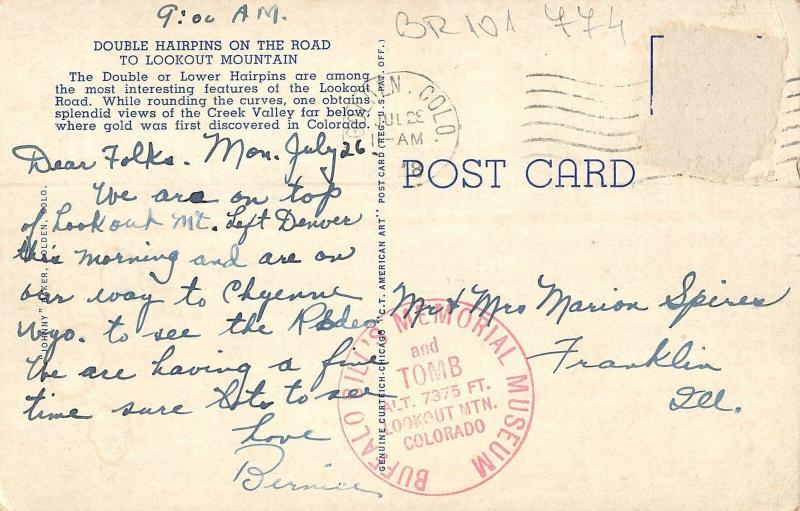 9:00 A.M.
BR101 774
DOUBLE HAIRPINS ON THE ROAD
TO LOOKOUT MOUNTAIN
The Double or Lower Hairpins are among
the most interesting features of the Lookout
Road. While rounding the curves, one obtains
splendid views of the Creek Valley far below,
where gold was first discovered in Colorado.
Dear Folks. Mon. July 26.
We are on top
of Lookout Mt. Left Denver
this morning and are on
our way to Chyenne
Wyo. to see the Rodeo
We are having a fine
time sure lots to see
Love
Bernice
"JOHNNY" GOLDEN, COLO.
GENUINE CURTEICH-CHICAGO "C.T. AMERICAN ART" POST CARD (REG. U.S. PAT. OFF.)
COLO.
JUL 26
AM
POST CARD
Mr & Mrs Marion Spires
Franklin
Ill.
BUFFALO BILL'S MEMORIAL MUSEUM
and
TOMB
ALT. 7375 FT.
LOOKOUT MTN.
COLORADO